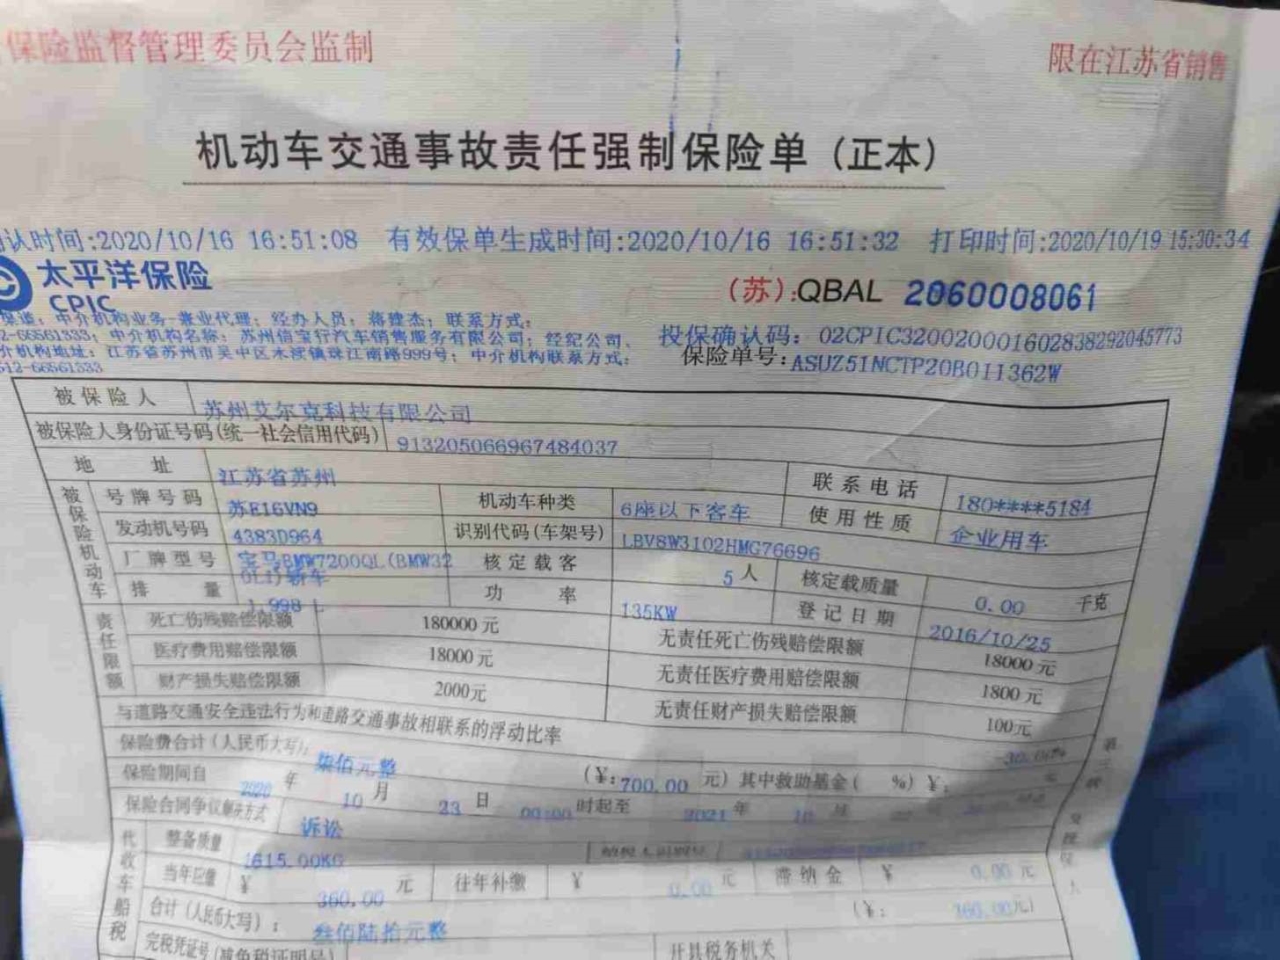 保险监督管理委员会监制
限在江苏省销售
机动车交通事故责任强制保险单（正本）
认时间:2020/10/16 16:51:08 有效保单生成时间:2020/10/16 16:51:32 打印时间:2020/10/19 15:30:34
太平洋保险
CPIC
(苏):QBAL 2060008061
渠道：中介机构业务-兼业代理；经办人员：蒋建杰；联系方式：
2-66561333；中介机构名称：苏州信宝行汽车销售服务有限公司；经纪公司、
介机构地址：江苏省苏州市吴中区木渎镇珠江南路999号；中介机构联系方式：
512-66561333
投保确认码：02CPIC320020001602838292045773
保险单号：ASUZ51NCTP20B011362W
被保险人 苏州艾尔克科技有限公司
被保险人身份证号码(统一社会信用代码) 913205066967484037
地 址 江苏省苏州 联系电话 180****5184
被保险机动车
号牌号码 苏E16VN9 机动车种类 6座以下客车 使用性质 企业用车
发动机号码 4383D964 识别代码(车架号) LBV8W3102HMG76696
厂牌型号 宝马BMW7200QL(BMW32
0Li)轿车 核定载客 5 人 核定载质量 0.00 千克
排 量 1.998 L 功 率 135KW 登记日期 2016/10/25
责任限额
死亡伤残赔偿限额 180000 元 无责任死亡伤残赔偿限额 18000 元
医疗费用赔偿限额 18000 元 无责任医疗费用赔偿限额 1800 元
财产损失赔偿限额 2000元 无责任财产损失赔偿限额 100元
与道路交通安全违法行为和道路交通事故相联系的浮动比率
保险费合计(人民币大写)：柒佰元整 (￥:700.00 元) 其中救助基金( %) ￥: 元
保险期间自 2020 年 10 月 23 日 00:00 时起至 2021 年 10 月
保险合同争议解决方式 诉讼
代收车船税
整备质量 1615.00KG
当年应缴 ￥ 360.00 元 往年补缴 ￥ 0.00 元 滞纳金 ￥ 0.00 元
合计(人民币大写)：叁佰陆拾元整 (￥: 360.00元)
完税凭证号(减免税证明号) 开具税务机关